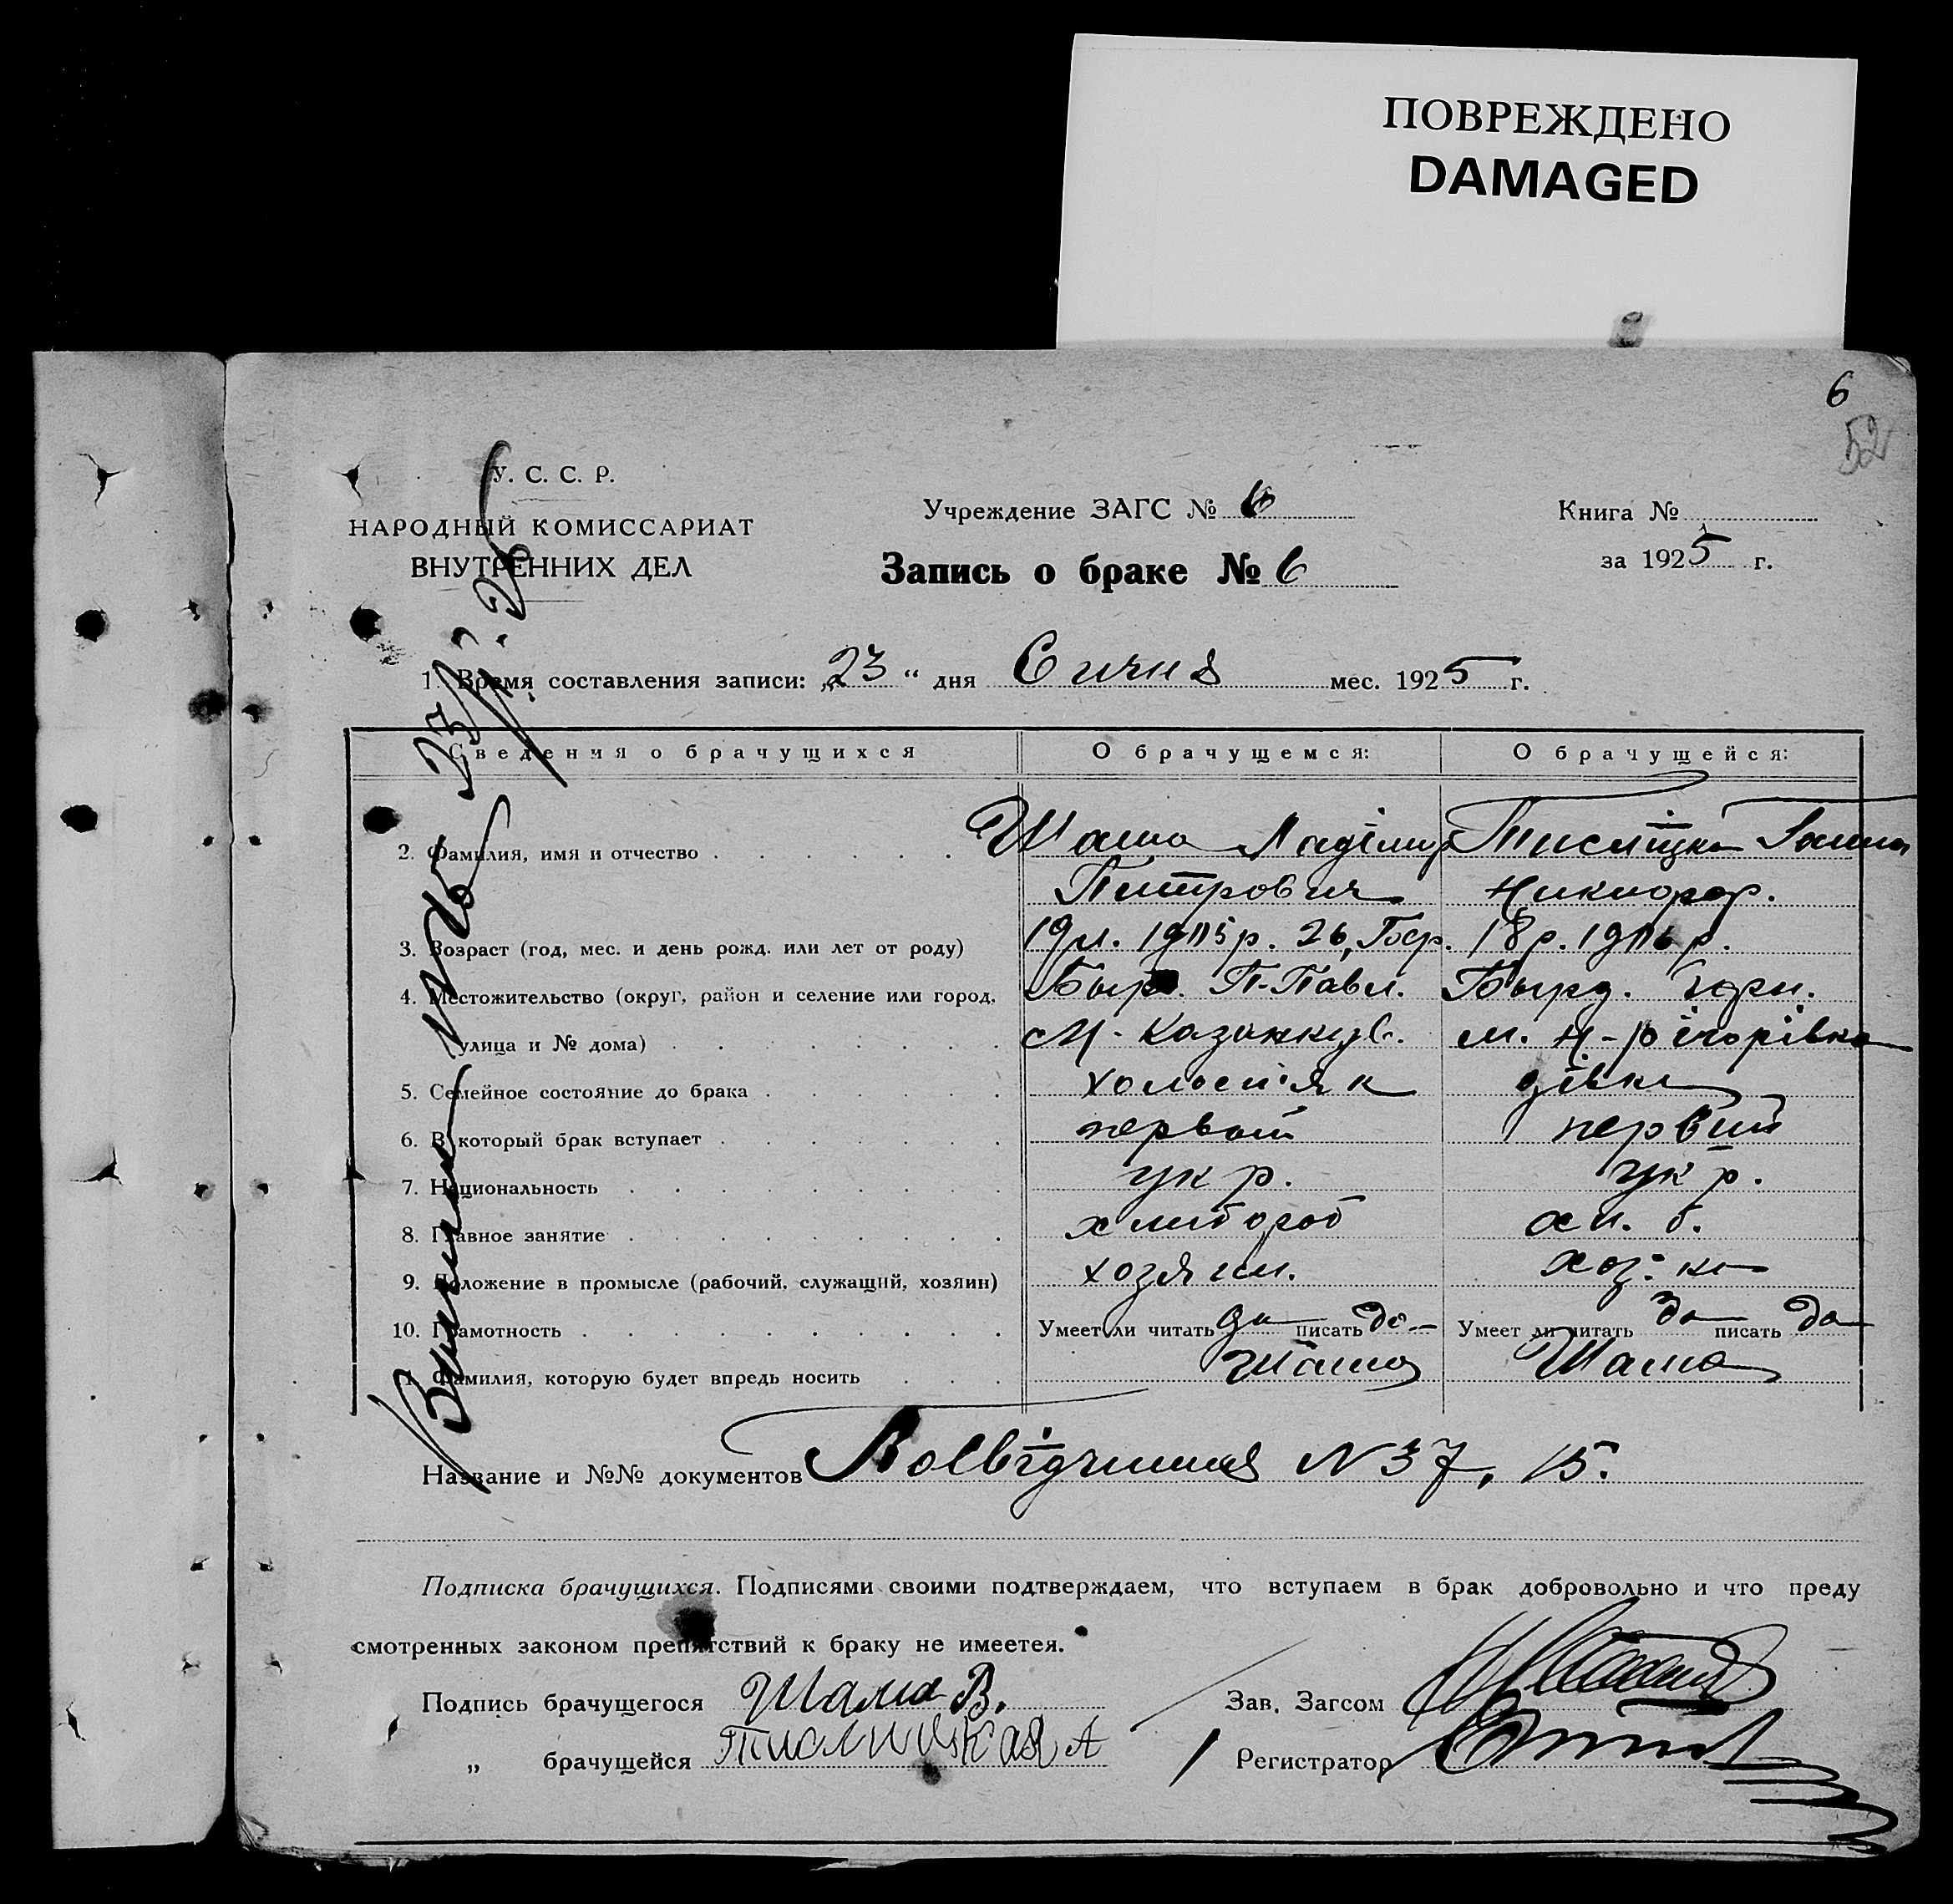 ПОВРЕЖДЕНО
DAMAGED
6
52
У. С. С. Р.
НАРОДНЫЙ КОМИССАРИАТ
ВНУТРЕННИХ ДЕЛ
Учреждение ЗАГС № 6
Запись о браке № 6
Книга №
за 1925 г.
1. Время составления записи: „23“ дня Сичня мес. 1925 г.
Сведения о брачущихся О брачущемся: О брачущейся:
2. Фамилия, имя и отчество Шама Ганна
Питрович Никиф
3. Возраст (год, мес. и день рожд. или лет от роду) 19 26, 18 р.
4. Местожительство (округ, район и селение или город, П-Павл. Бырд.
улица и № дома) м.
5. Семейное состояние до брака холостяк дівка
6. В который брак вступает первый первий
7. Национальность укр. укр.
8. Главное занятие хлибороб хл. б.
9. Положение в промысле (рабочий, служащий, хозяин) хозяин. хоз-ка
10. Грамотность Умеет ли читать да писать да Умеет ли читать да писать да
11. Фамилия, которую будет впредь носить Шама Шама
Название и №№ документов Посвідчиння N 37, 15.
Подписка брачущихся. Подписями своими подтверждаем, что вступаем в брак добровольно и что преду
смотренных законом препятствий к браку не имеетея.
Подпись брачущегося Шама В. Зав. Загсом
„ брачущейся Тислицкая А Регистратор